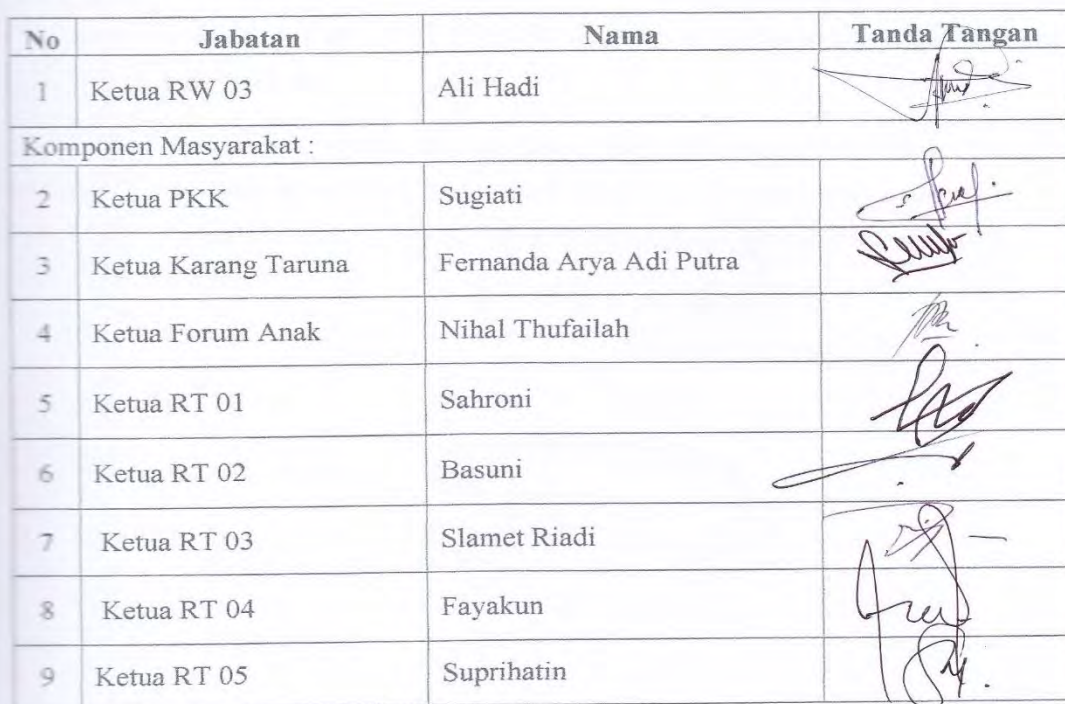 No Jabatan Nama Tanda Tangan
1 Ketua RW 03 Ali Hadi
Komponen Masyarakat :
2 Ketua PKK Sugiati
3 Ketua Karang Taruna Fernanda Arya Adi Putra
4 Ketua Forum Anak Nihal Thufailah
5 Ketua RT 01 Sahroni
6 Ketua RT 02 Basuni
7 Ketua RT 03 Slamet Riadi
8 Ketua RT 04 Fayakun
9 Ketua RT 05 Suprihatin